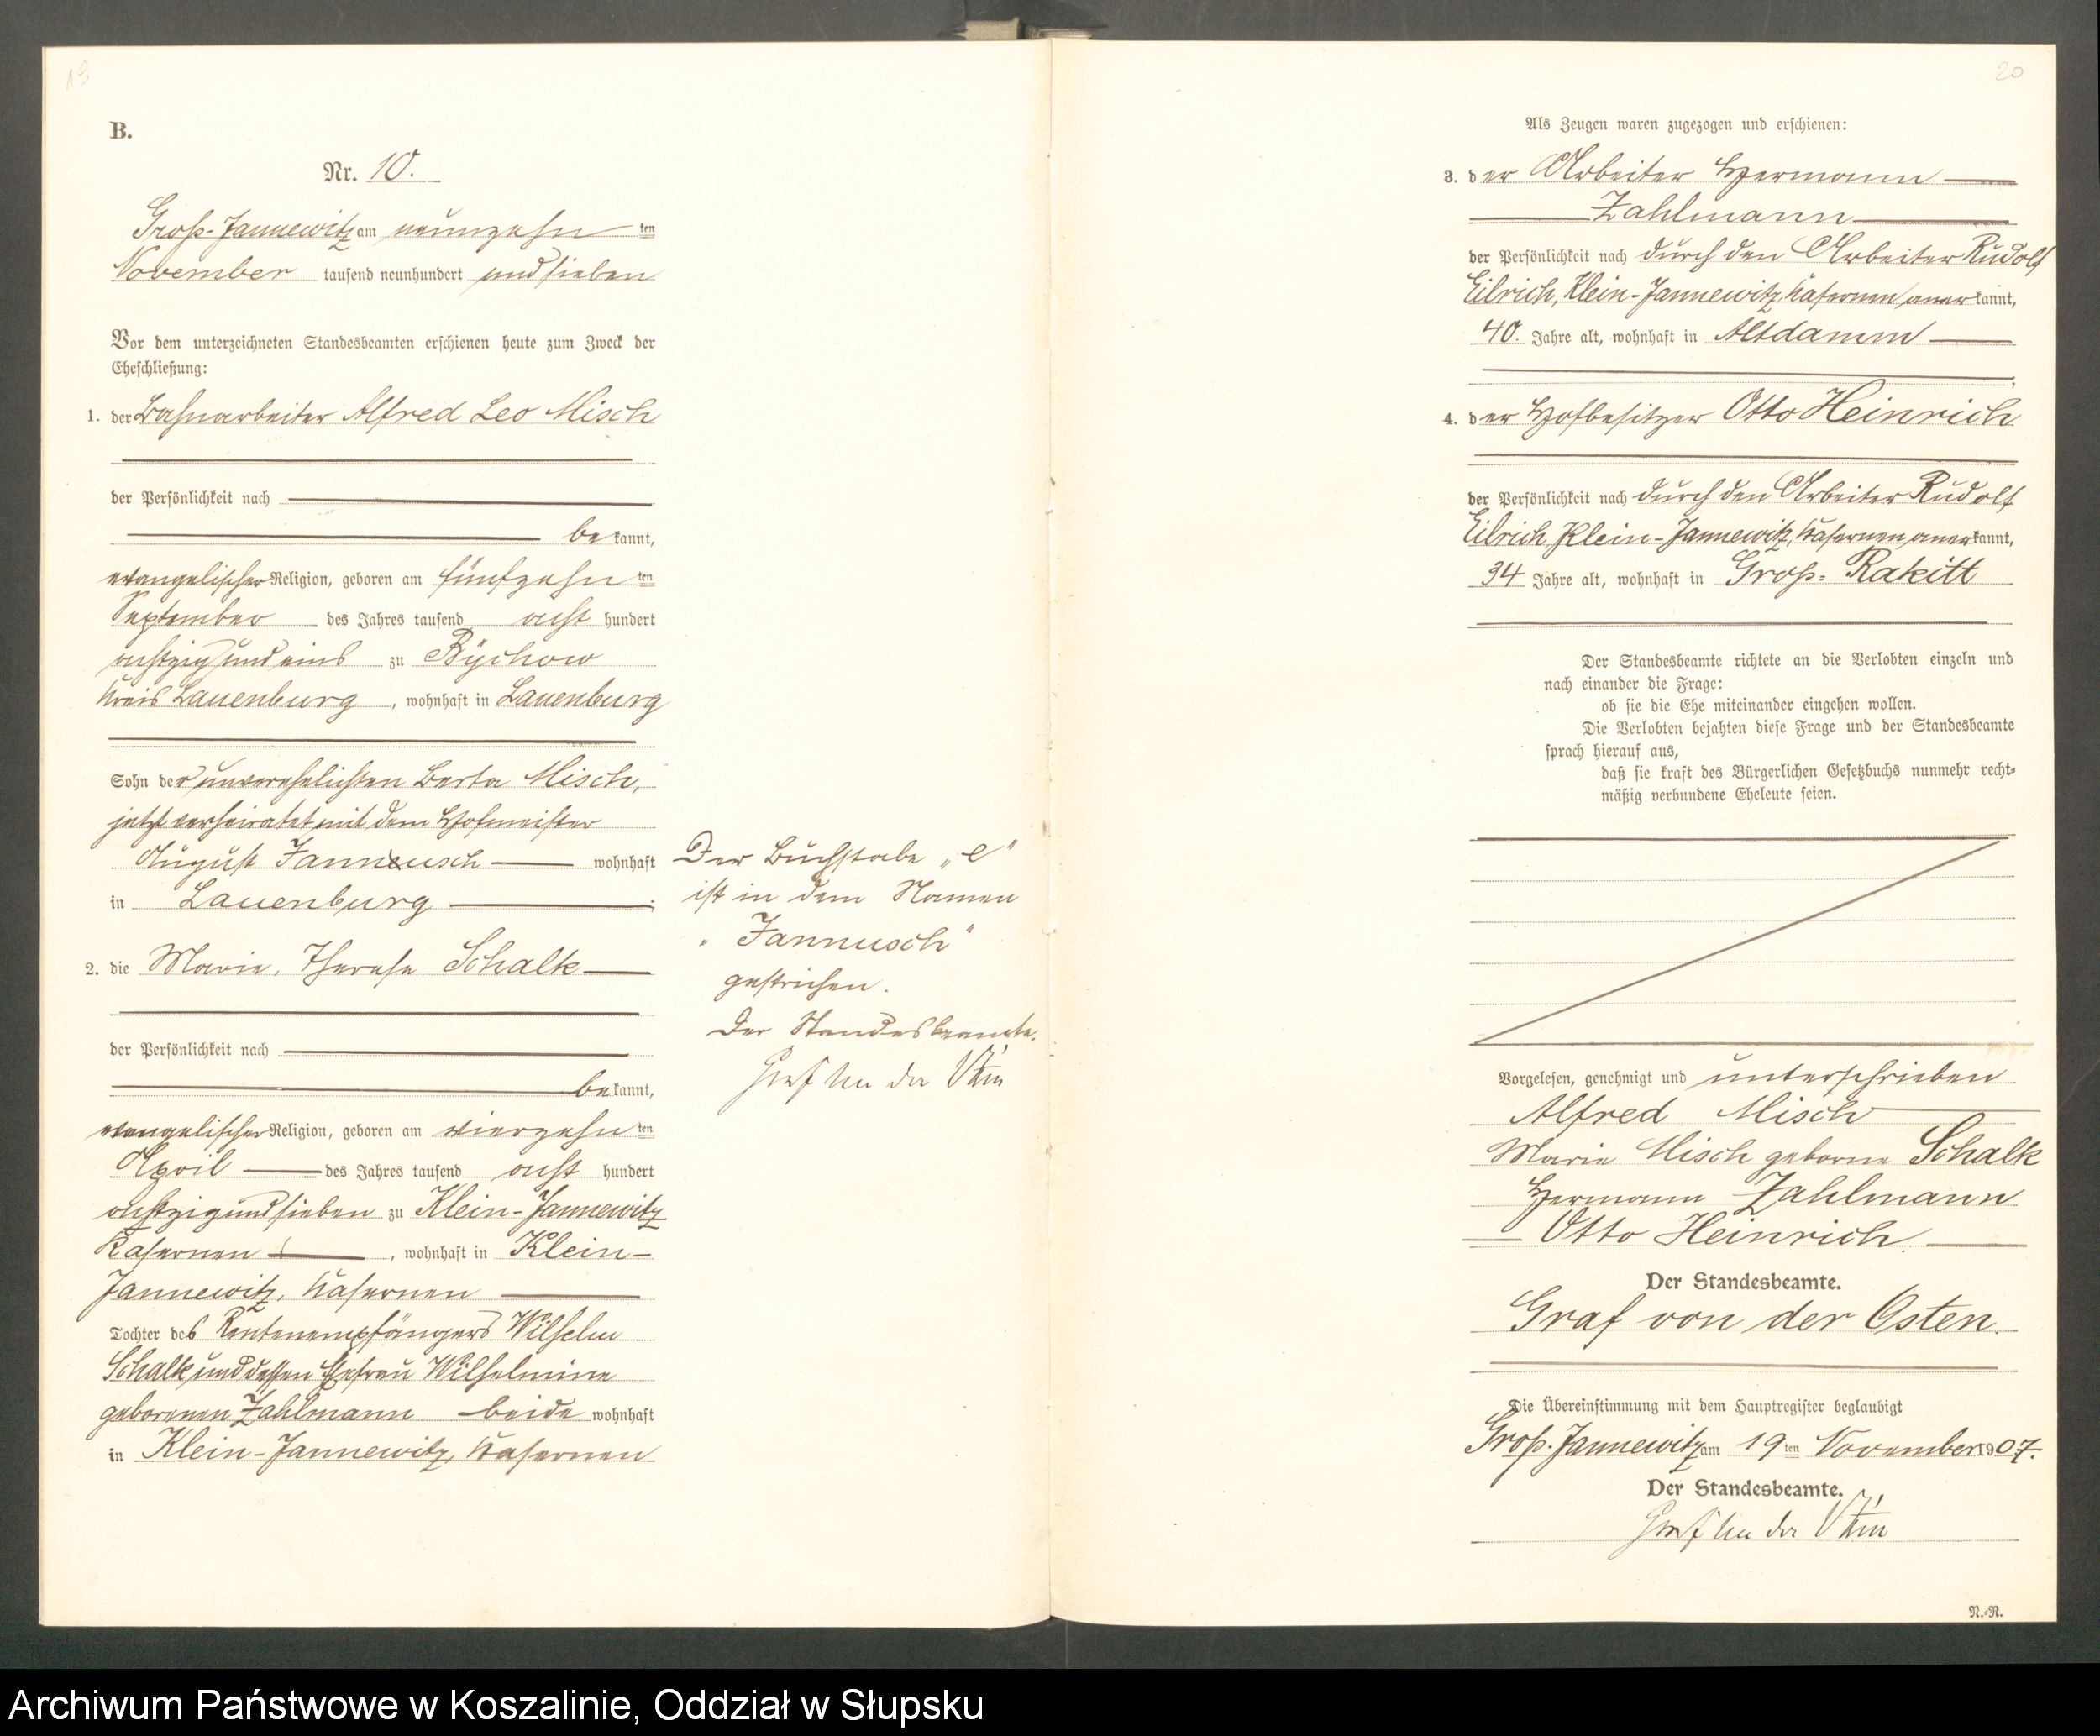 19
B.
Nr. 10.
Groß-Jannewitz am neunzehn ten
November tausend neunhundert und sieben
Vor dem unterzeichneten Standesbeamten erschienen heute zum Zweck der
Eheschließung:
1. der Bahnarbeiter Alfred Leo Misch
der Persönlichkeit nach
be kannt,
evangelischer Religion, geboren am fünfzehn ten
September des Jahres tausend acht hundert
achtzig und eins zu Bychow
Kreis Lauenburg, wohnhaft in Lauenburg
Sohn der unverehelichten Berta Misch,
jetzt verheiratet mit dem Hofmeister
August Janneusch wohnhaft
in Lauenburg
2. die Marie Therese Schalk
der Persönlichkeit nach
be kannt,
evangelischer Religion, geboren am vierzehn ten
April des Jahres tausend acht hundert
achtzig und sieben zu Klein-Jannewitz
Kasernen, wohnhaft in Klein-
Jannewitz, Kasernen
Tochter des Rentenempfängers Wilhelm
Schalk und dessen Ehefrau Wilhelmine
geborenen Zahlmann beide wohnhaft
in Klein-Jannewitz, Kasernen
Der Buchstabe „e"
ist in dem Namen
„Jannusch"
gestrichen.
Der Standesbeamte.
Graf von der Osten
20
Als Zeugen waren zugezogen und erschienen:
3. der Arbeiter Hermann
Zahlmann
der Persönlichkeit nach durch den Arbeiter Rudolf
Eilrich, Klein-Jannewitz, Kasernen aner kannt,
40. Jahre alt, wohnhaft in Altdamm
4. der Hofbesitzer Otto Heinrich
der Persönlichkeit nach durch den Arbeiter Rudolf
Eilrich, Klein-Jannewitz, Kasernen aner kannt,
34 Jahre alt, wohnhaft in Groß-Rakitt
Der Standesbeamte richtete an die Verlobten einzeln und
nach einander die Frage:
ob sie die Ehe miteinander eingehen wollen.
Die Verlobten bejahten diese Frage und der Standesbeamte
sprach hierauf aus,
daß sie kraft des Bürgerlichen Gesetzbuchs nunmehr recht-
mäßig verbundene Eheleute seien.
Vorgelesen, genehmigt und unterschrieben
Alfred Misch
Marie Misch geborne Schalk
Hermann Zahlmann
Otto Heinrich.
Der Standesbeamte.
Graf von der Osten.
Die Übereinstimmung mit dem Hauptregister beglaubigt
Groß-Jannewitz am 19 ten November 1907.
Der Standesbeamte.
Graf von der Osten
N.-R.
Archiwum Państwowe w Koszalinie, Oddział w Słupsku